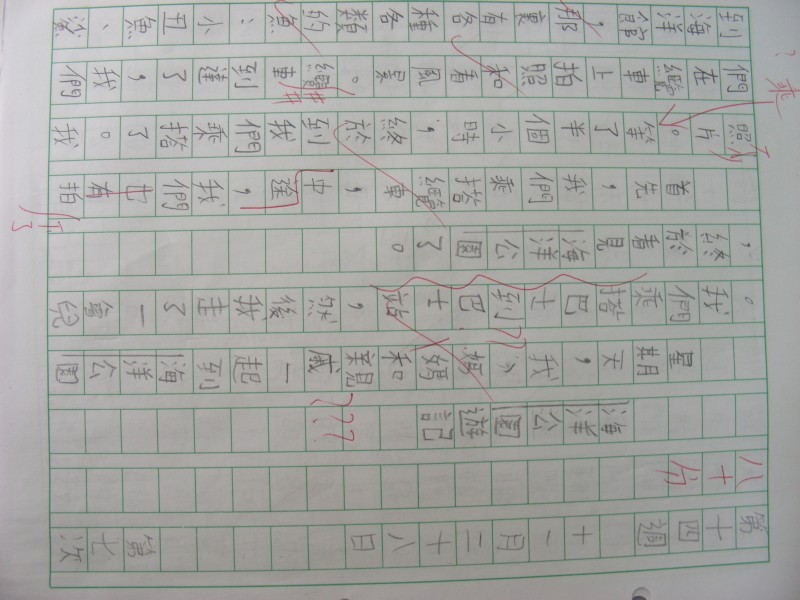 第十四週 十一月二十八日 第七次
八十分
海洋公園遊記
???
星期天，我、媽媽和親戚一起到海洋公園
。我們乘搭巴士到巴士站，然後我走了一會兒
，終於看見海洋公園了。
首先，我們乘搭纜車，中途，我們也有拍
了
照片。等了半個小時，終於到我們乘搭了。我
?乘
們在纜車上拍照和看風景。纜車到達了，我們
到海洋館，那裏有各種各類的魚：小丑魚、鯊